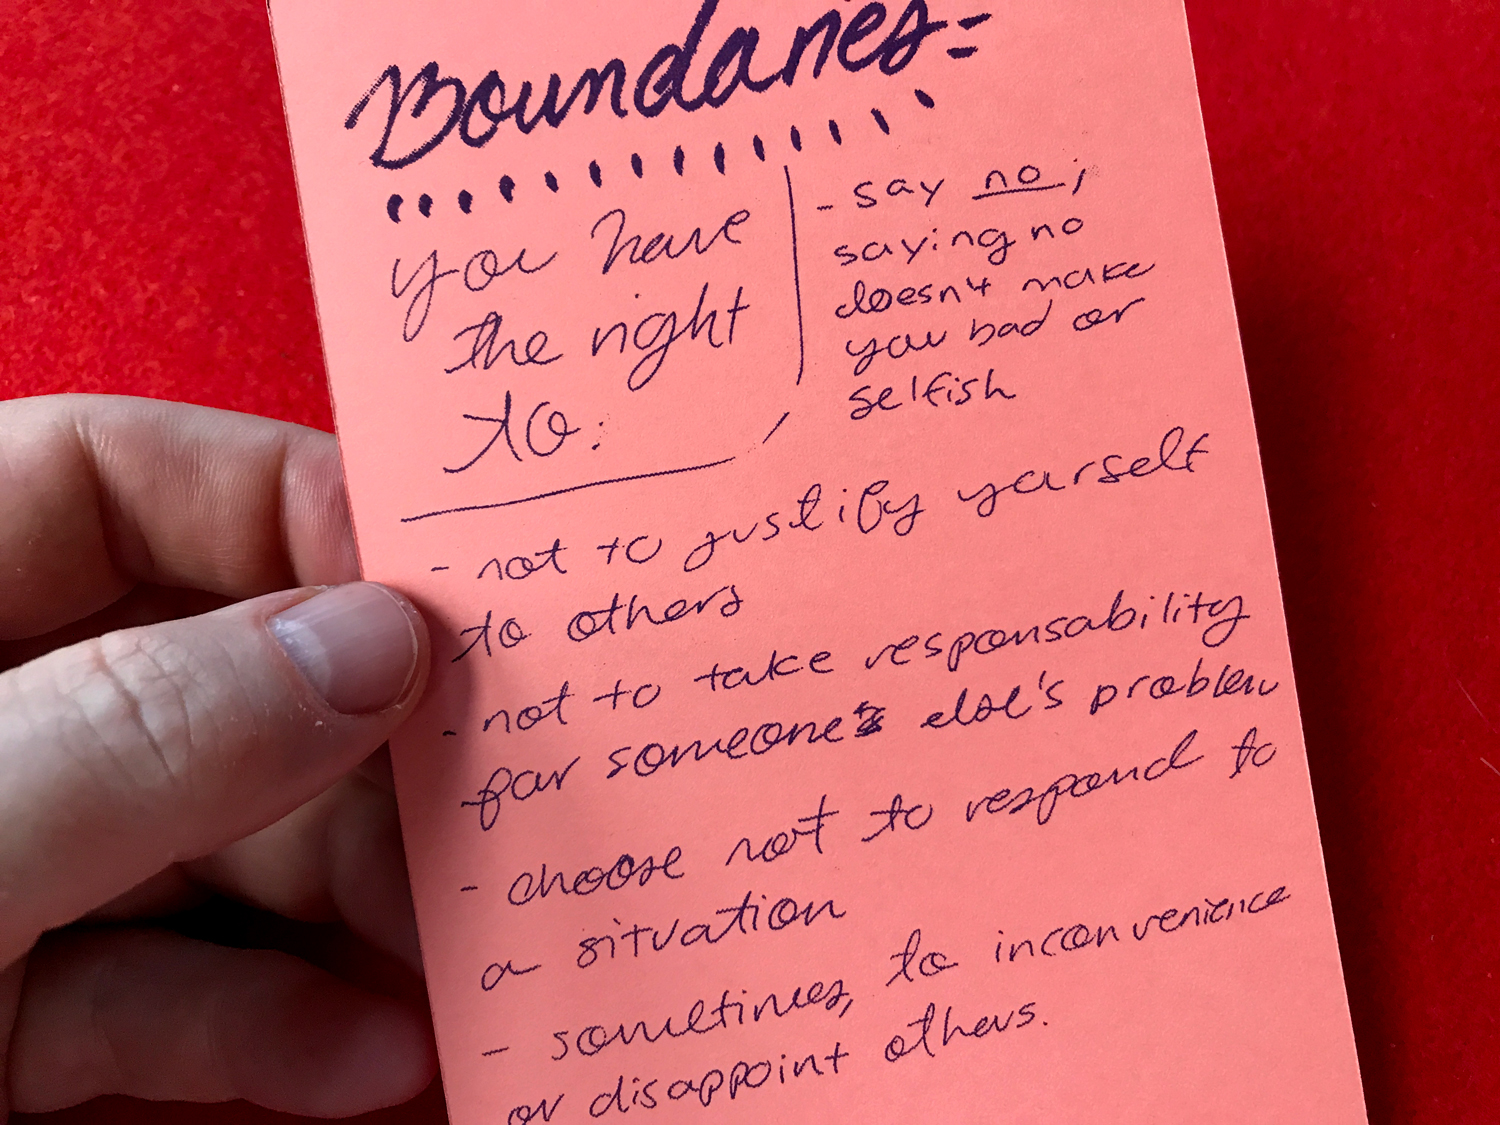 Boundaries=
you have
the right
to:
- say no;
saying no
doesn't make
you bad or
selfish
- not to justify yourself
to others
- not to take responsability
for someone's else's problem
- choose not to respond to
a situation
- sometimes, to inconvenience
or disappoint others.